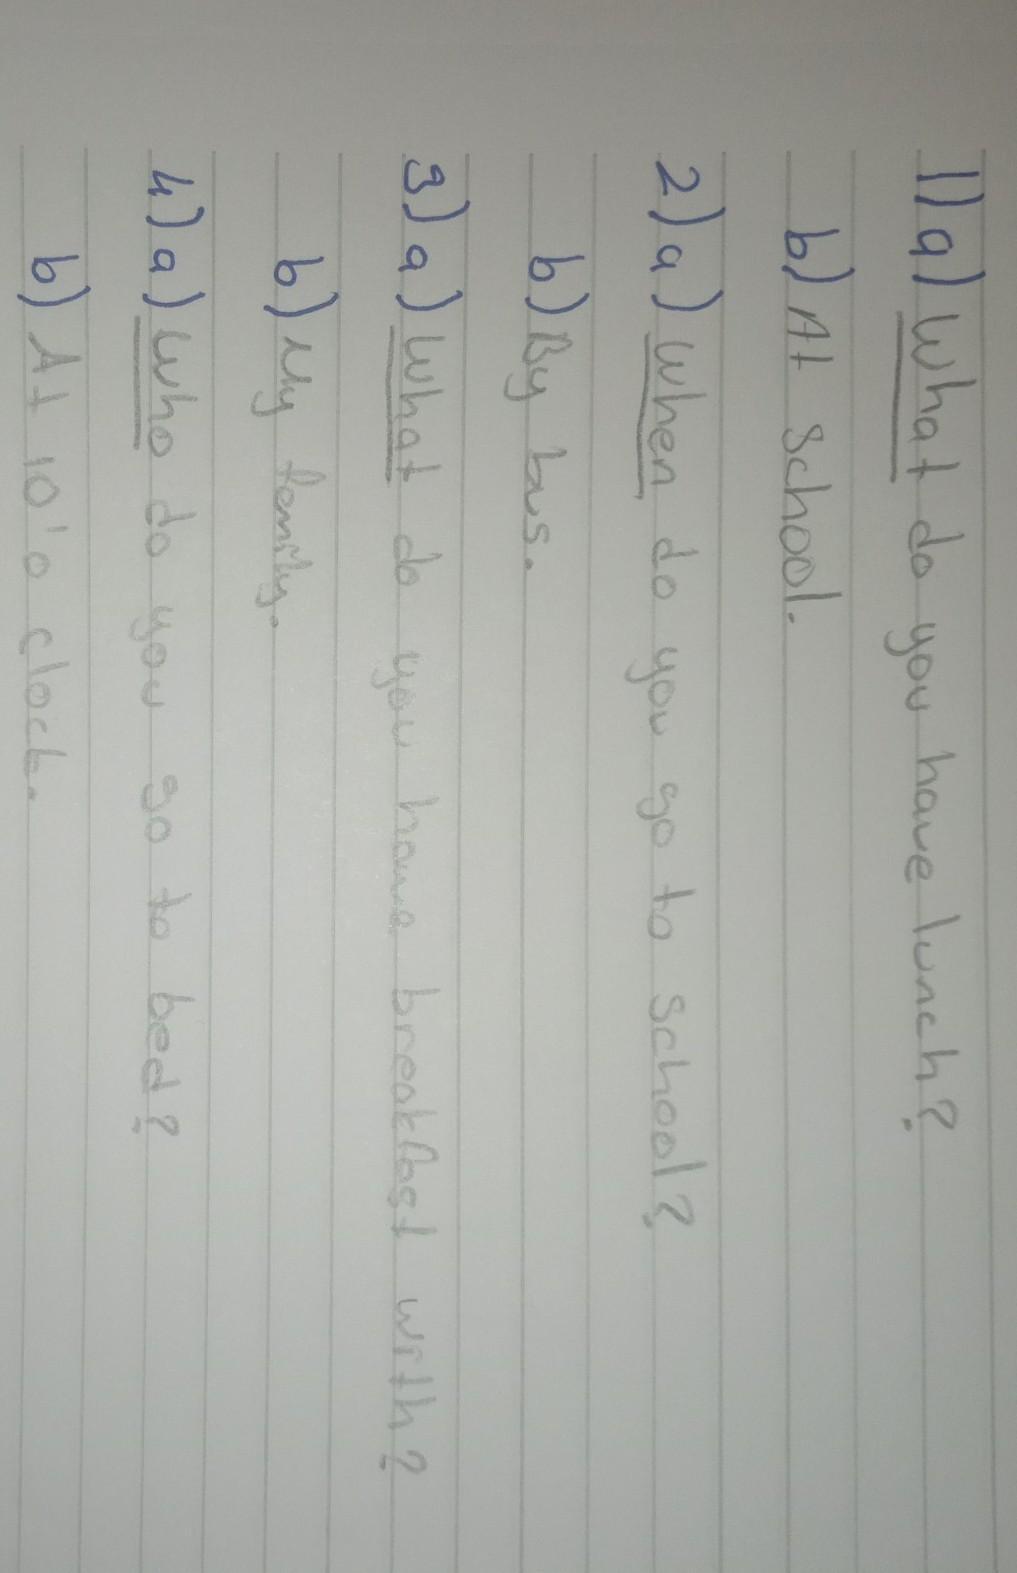 1) a) What do you have lunch?
b) At school.
2) a) When do you go to school?
b) By bus.
3) a) What do you have breakfast with?
b) My family.
4) a) Who do you go to bed?
b) At 10'o clock.